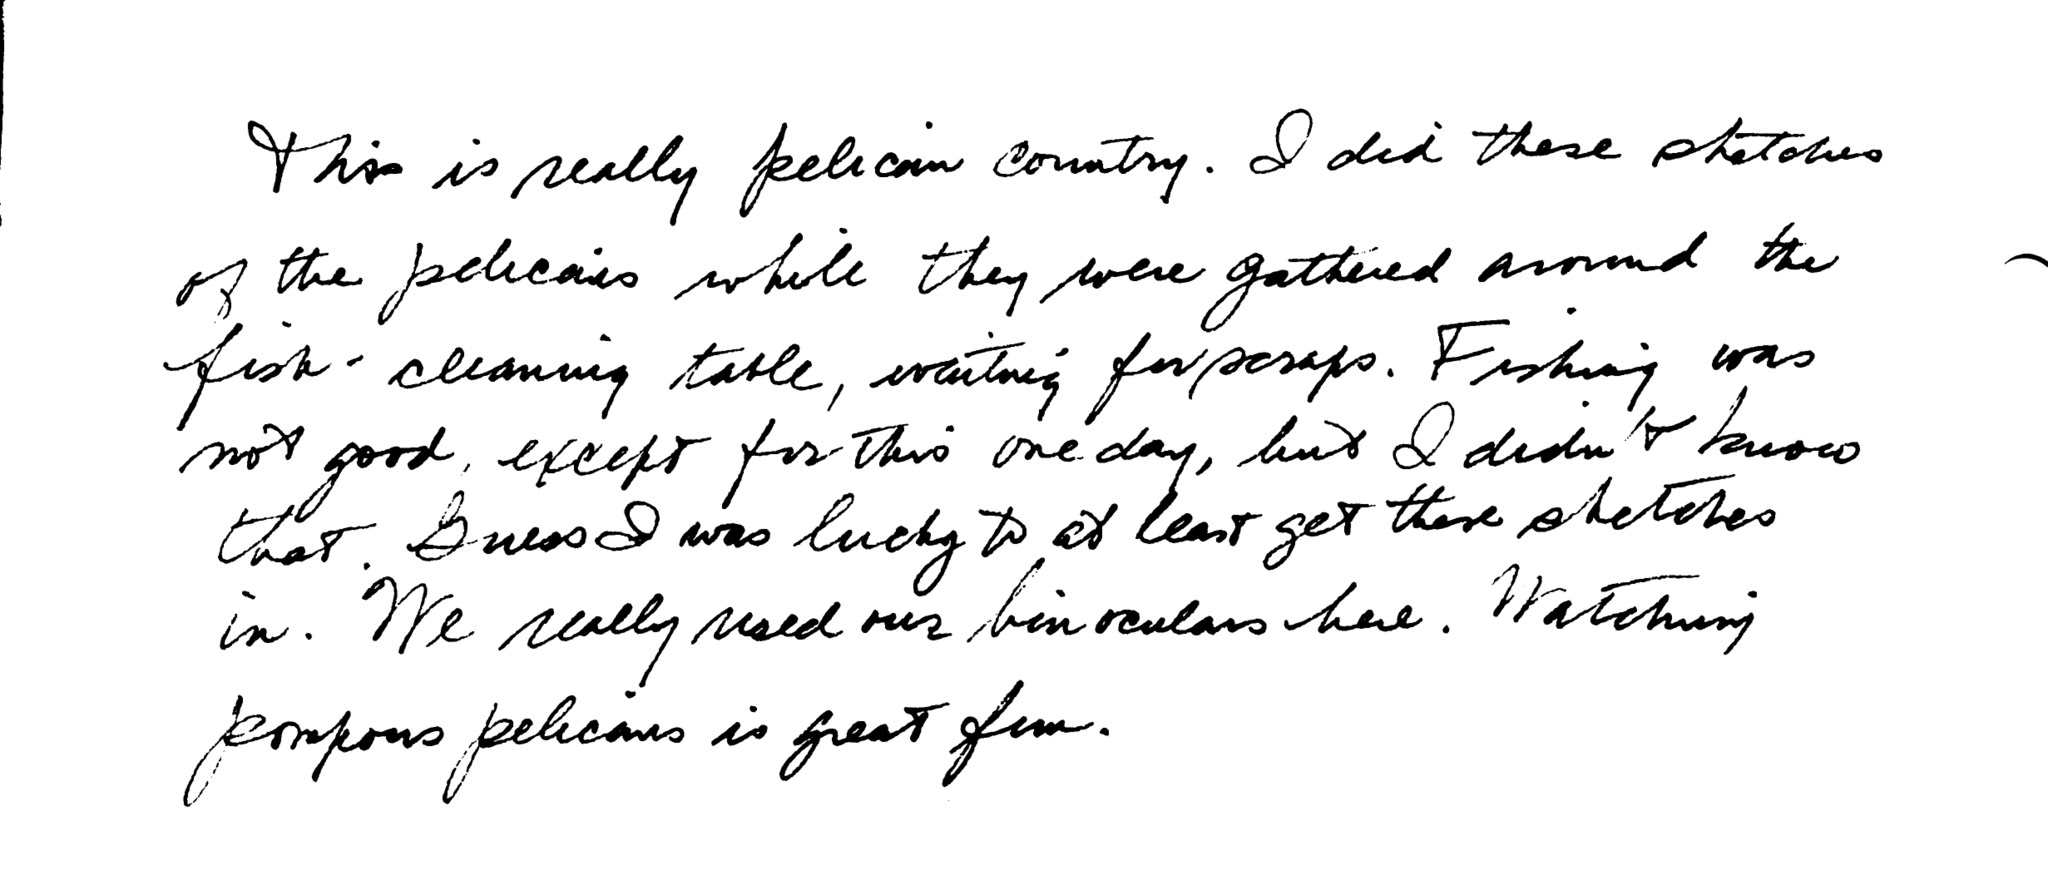 This is really pelican country. I did these sketches
of the pelicans while they were gathered around the
fish-cleaning table, waiting for scraps. Fishing was
not good, except for this one day, but I didn't know
that. Guess I was lucky to at least get these sketches
in. We really used our binoculars here. Watching
pompous pelicans is great fun.